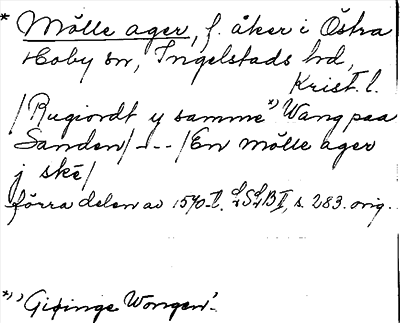 * Mölle ager, f. åker i Östra
Hoby sn, Ingelstads hd,
Krist. l.
/Rugiordt y samme *) Wang paa
Sanden/--- /En mölle ager
j skē/
förra delen av 1570-t. LSLB II, s. 283. orig.
*) 'Gisinge Wongen'.